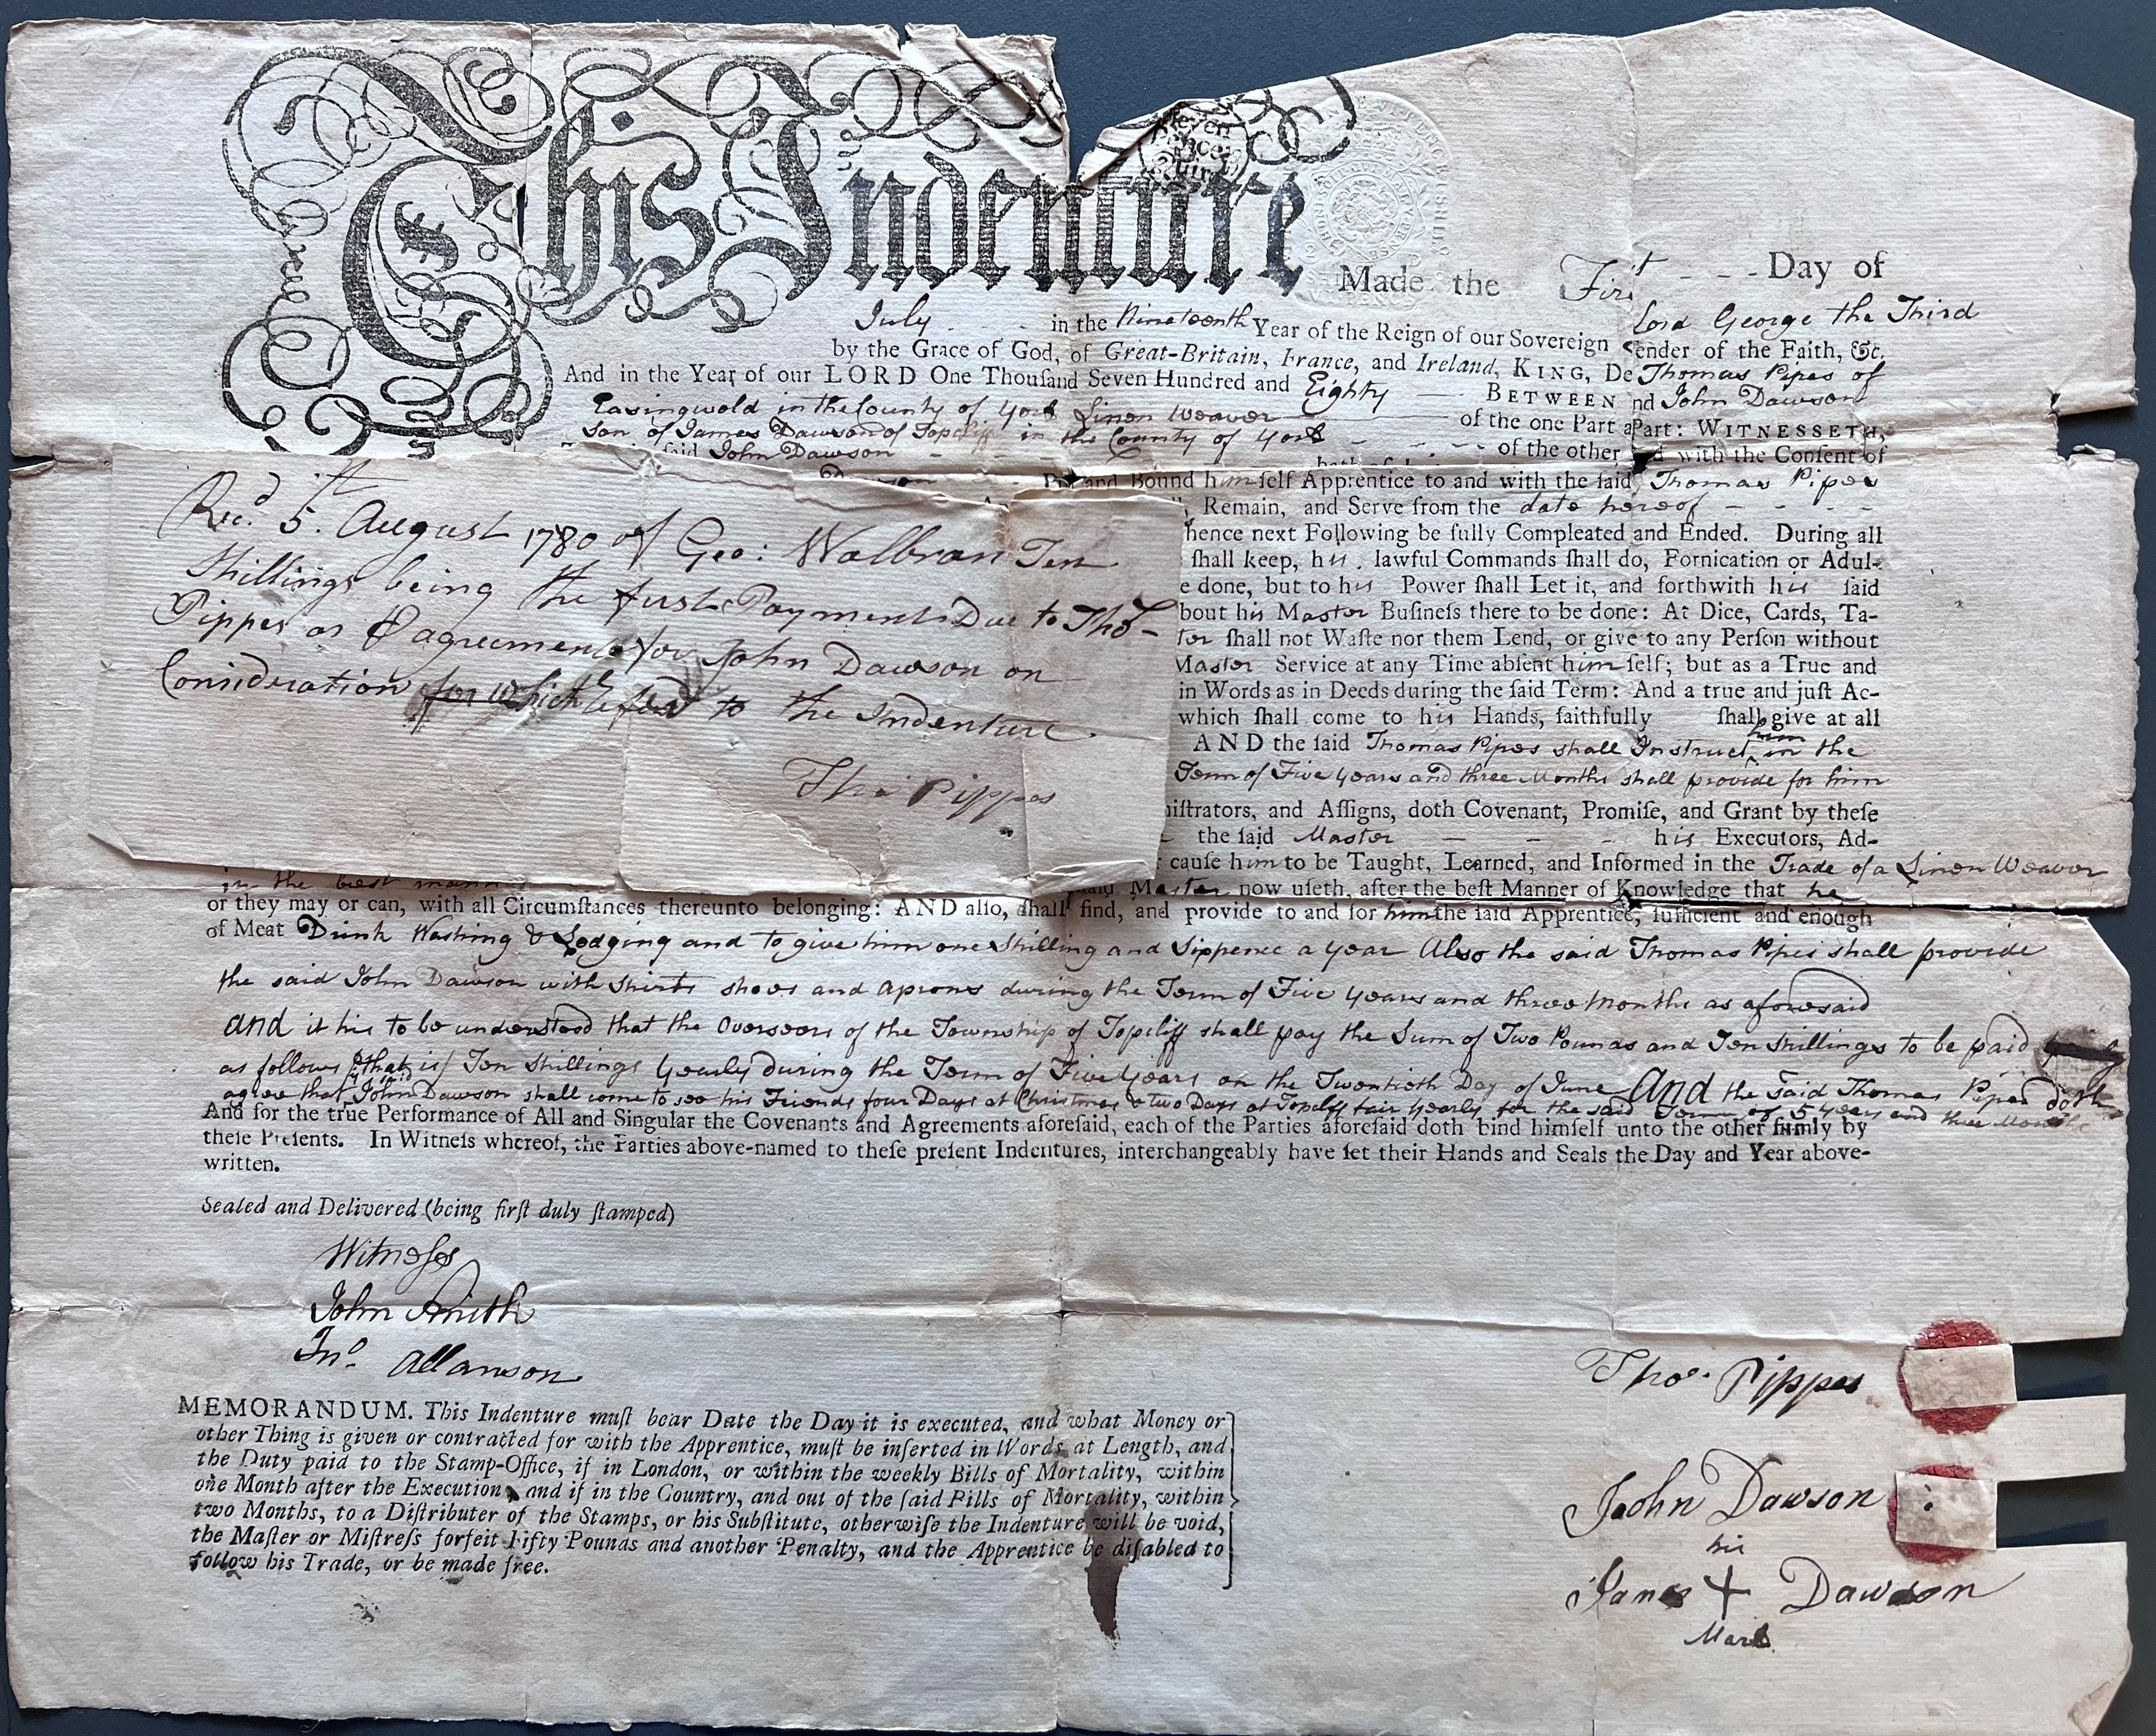 This Indenture
Made the First - - - Day of
July - - - in the Nineteenth Year of the Reign of our Sovereign Lord George the Third
by the Grace of God, of Great-Britain, France, and Ireland, KING, De ender of the Faith, &c.
And in the Year of our LORD One Thouſand Seven Hundred and Eighty — BETWEEN Thomas Pipes of
Easingwold in the County of York Linen Weaver — of the one Part and John Dawson
Son of James Dawson of Topcliff in the County of York - - - of the other Part: WITNESSETH,
ſaid John Dawson - - - with the Conſent of
Put and Bound himſelf Apprentice to and with the ſaid Thomas Pipes
Remain, and Serve from the date hereof - - - -
hence next Following be fully Compleated and Ended. During all
ſhall keep, his lawful Commands ſhall do, Fornication or Adul-
e done, but to his Power ſhall Let it, and forthwith his ſaid
bout his Master Buſineſs there to be done: At Dice, Cards, Ta-
ſhall not Waſte nor them Lend, or give to any Perſon without
Master Service at any Time abſent himſelf; but as a True and
in Words as in Deeds during the ſaid Term: And a true and juſt Ac-
which ſhall come to his Hands, faithfully ſhall give at all
AND the ſaid Thomas Pipes shall Instruct him in the
Term of Five years and three Months shall provide for him
niſtrators, and Aſſigns, doth Covenant, Promiſe, and Grant by theſe
the ſaid Master - - - his Executors, Ad-
cauſe him to be Taught, Learned, and Informed in the Trade of a Linen Weaver
in the best mann Master now uſeth, after the beſt Manner of Knowledge that he
or they may or can, with all Circumſtances thereunto belonging: AND alſo, ſhall find, and provide to and for him the ſaid Apprentice, ſufficient and enough
of Meat Drink Washing & Lodging and to give him one Shilling and Sixpence a year Also the said Thomas Pipes shall provide
the said John Dawson with Shirts shoes and Aprons during the Term of Five years and three Months as aforesaid
and it his to be understood that the Overseers of the Township of Topcliff shall pay the Sum of Two Pounds and Ten Shillings to be paid
as follows that is Ten Shillings yearly during the Term of Five years on the Twentieth Day of June And the said Thomas Pipes doth
agree that John Dawson shall come to see his Friends four Days at Christmas & two Days at Topcliff fair yearly for the said Term of 5 years and three Months
And for the true Performance of All and Singular the Covenants and Agreements aforeſaid, each of the Parties aforeſaid doth bind himſelf unto the other firmly by
theſe Preſents. In Witneſs whereof, the Parties above-named to theſe preſent Indentures, interchangeably have ſet their Hands and Seals the Day and Year above-
written.
Recd. 5th. August 1780 of Geo: Walbran Ten
Shillings being the first Payment Due to Thos
Pippes as P agreement for John Dawson on
Consideration for which to the Indenture.
Thos Pippes
Sealed and Delivered (being firſt duly ſtamped)
Witneſses
John Smith
Jno. Allanson
MEMORANDUM. This Indenture muſt bear Date the Day it is executed, and what Money or
other Thing is given or contracted for with the Apprentice, muſt be inſerted in Words at Length, and
the Duty paid to the Stamp-Office, if in London, or within the weekly Bills of Mortality, within
one Month after the Execution, and if in the Country, and out of the ſaid Bills of Mortality, within
two Months, to a Diſtributer of the Stamps, or his Subſtitute, otherwiſe the Indenture will be void,
the Maſter or Miſtreſs forfeit Fifty Pounds and another Penalty, and the Apprentice be diſabled to
follow his Trade, or be made free.
Thos. Pippes
Joohn Dawson
his
James + Dawson
Mark